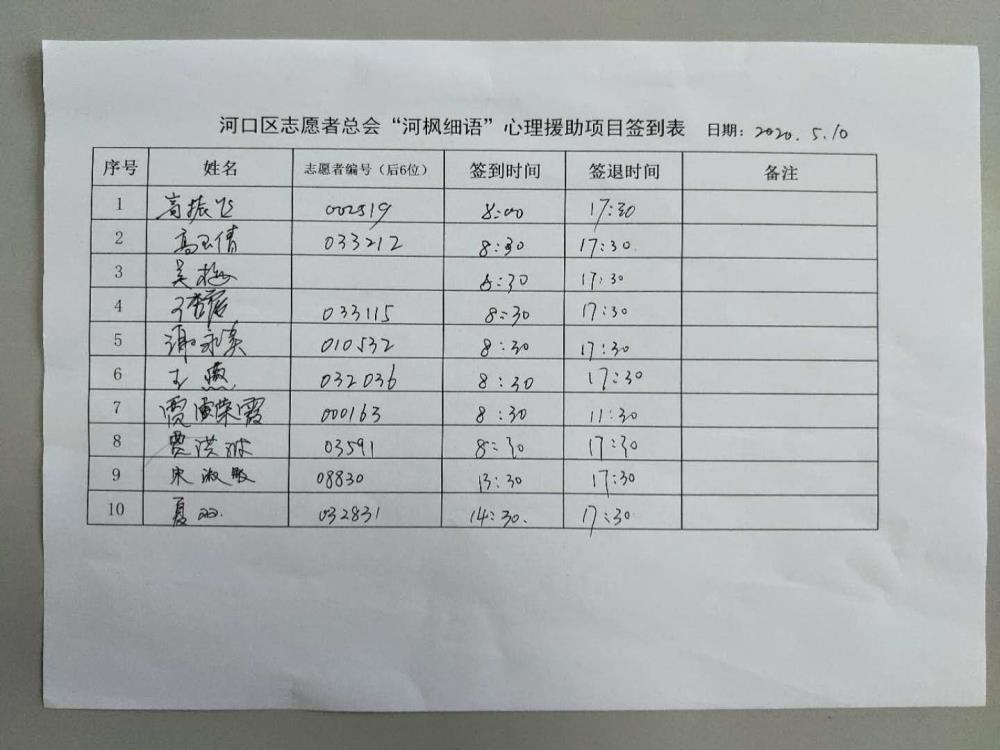 河口区志愿者总会“河枫细语”心理援助项目签到表 日期：2020.5.10
序号 姓名 志愿者编号（后6位） 签到时间 签退时间 备注
1 高振飞 002519 8:00 17:30
2 高玉倩 033212 8:30 17:30
3 吴梅 8:30 17:30
4 033115 8:30 17:30
5 谢永英 010532 8:30 17:30
6 王燕 032036 8:30 17:30
7 贾荣霞 000163 8:30 11:30
8 贾洪波 03591 8:30 17:30
9 宋淑敏 08830 13:30 17:30
10 夏双 032831 14:30. 17:30